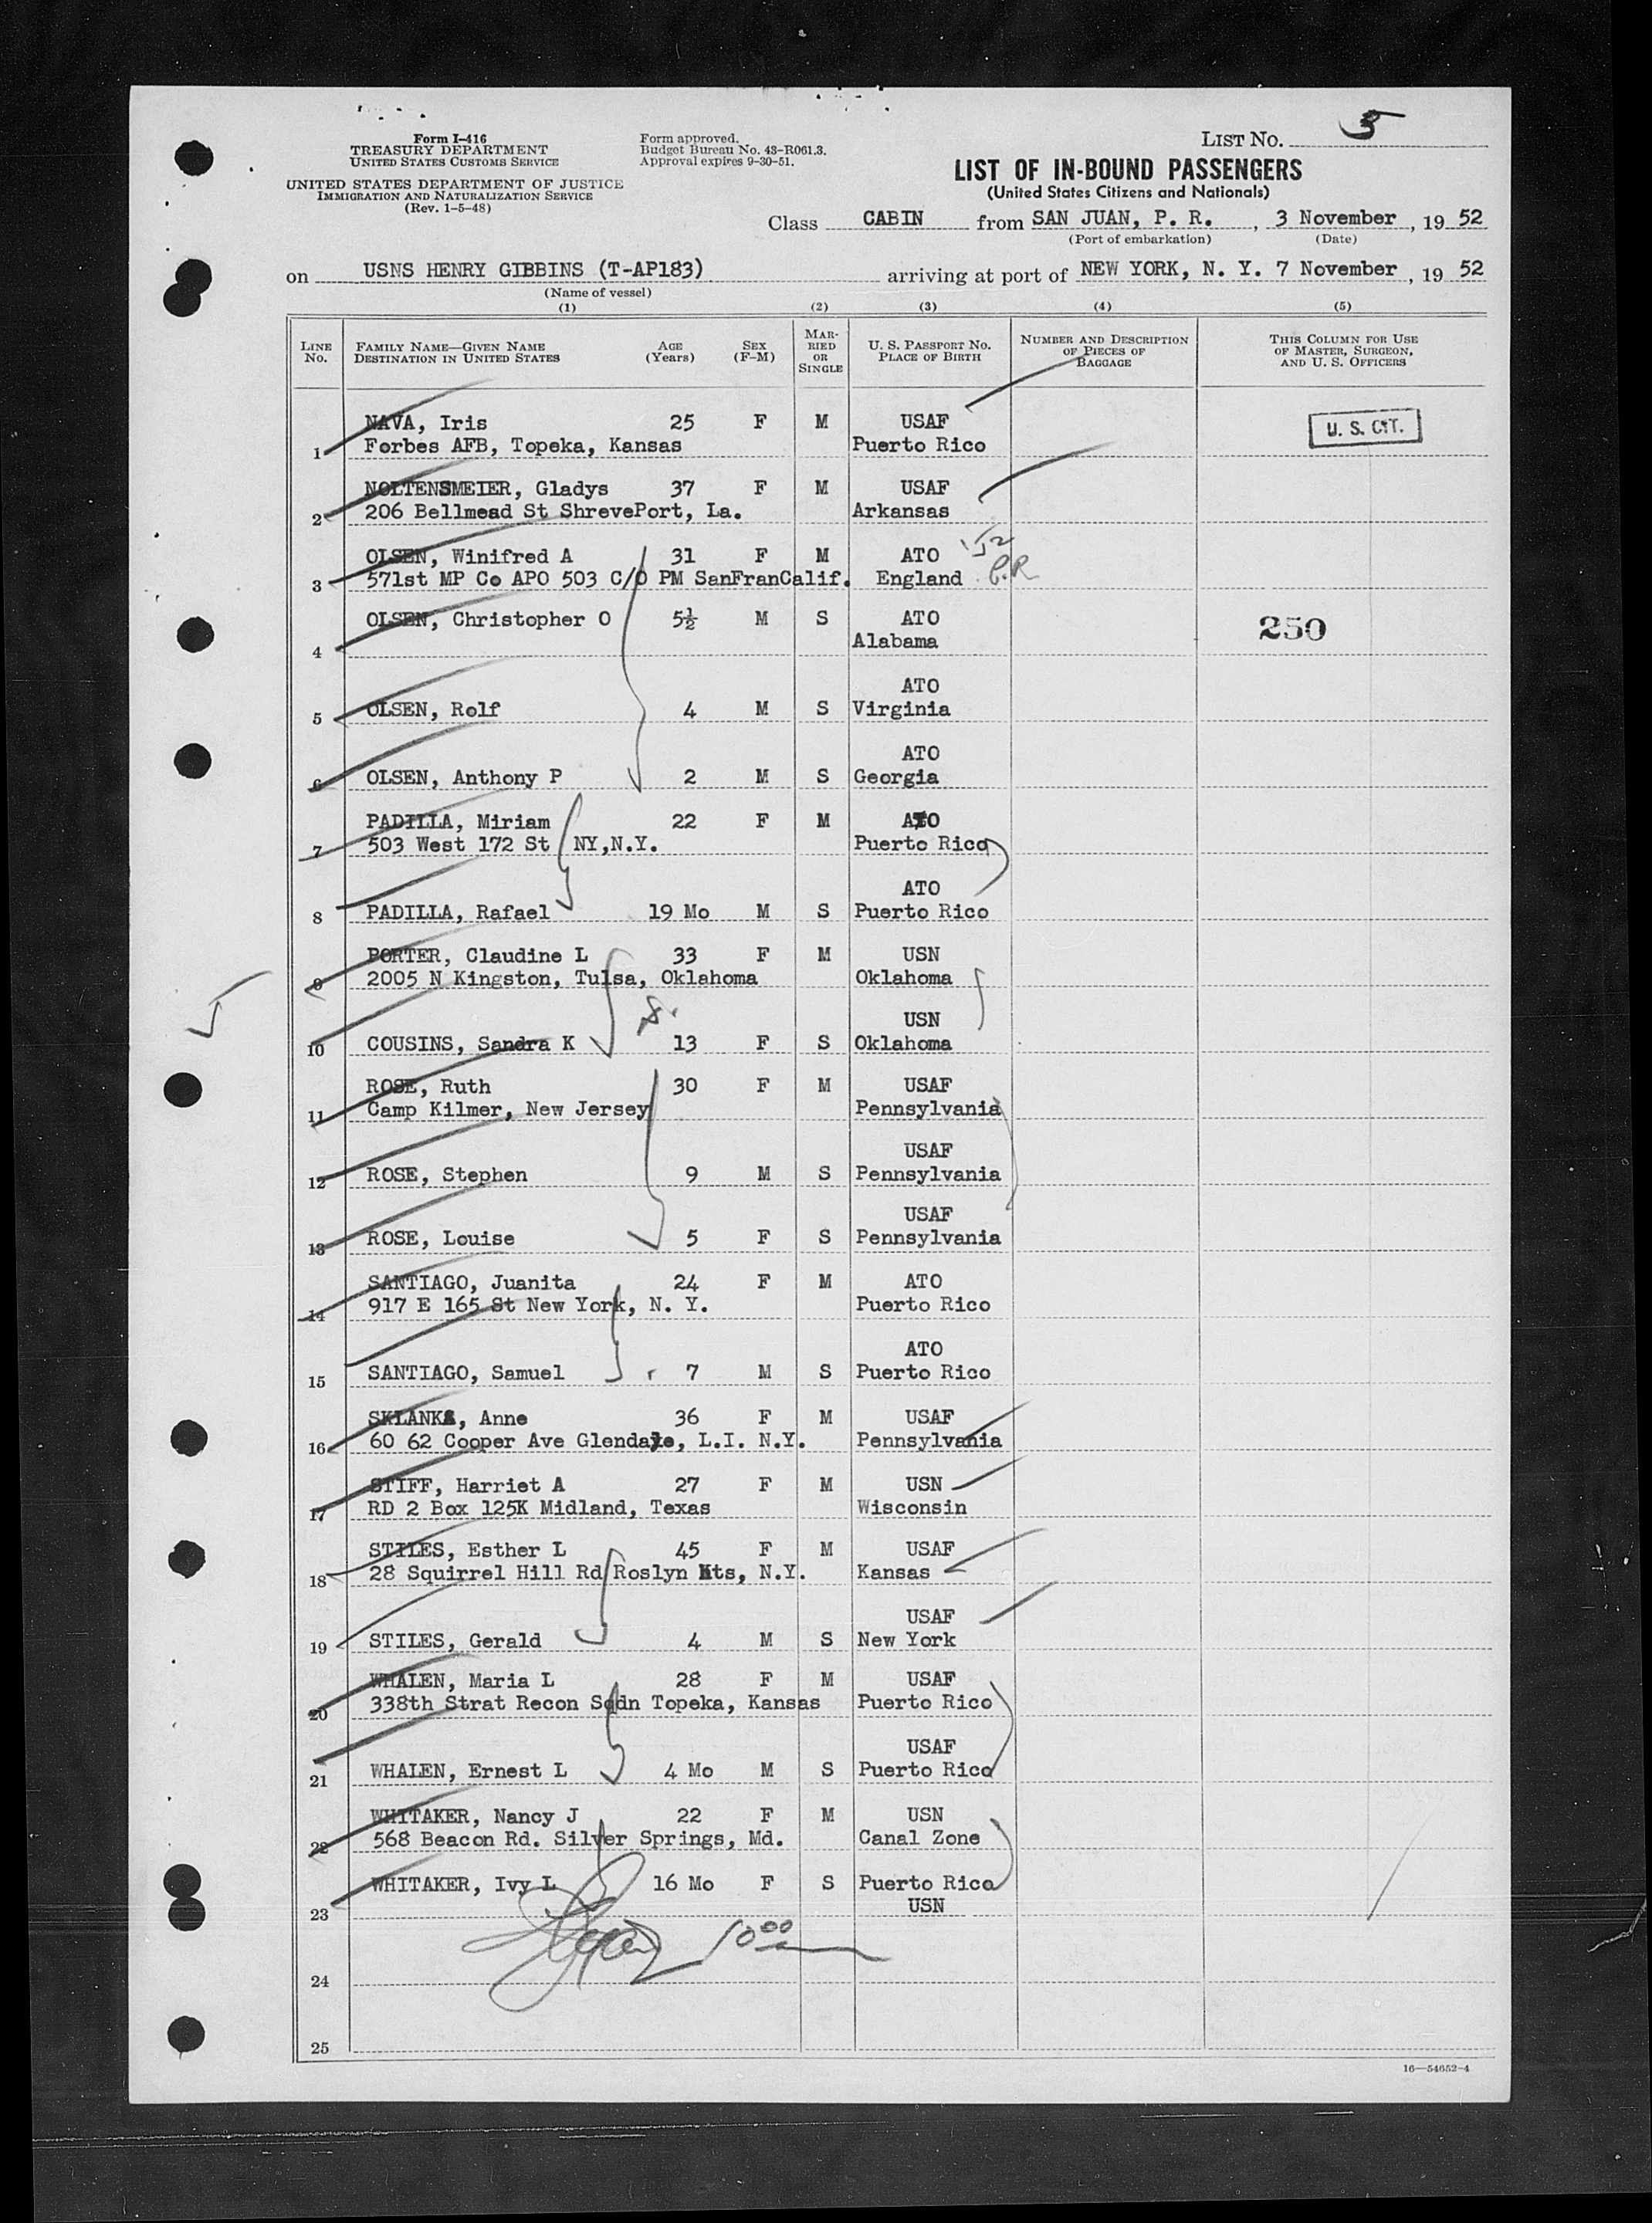 Form I-416
TREASURY DEPARTMENT
UNITED STATES CUSTOMS SERVICE
UNITED STATES DEPARTMENT OF JUSTICE
IMMIGRATION AND NATURALIZATION SERVICE
(Rev. 1-5-48)
Form approved.
Budget Bureau No. 43-R061.3.
Approval expires 9-30-51.
LIST NO. 5
LIST OF IN-BOUND PASSENGERS
(United States Citizens and Nationals)
Class CABIN from SAN JUAN, P. R., 3 November, 19 52
(Port of embarkation) (Date)
on USNS HENRY GIBBINS (T-AP183) arriving at port of NEW YORK, N. Y. 7 November, 19 52
(Name of vessel)
(1) (2) (3) (4) (5)
LINE No. FAMILY NAME—GIVEN NAME DESTINATION IN UNITED STATES AGE (Years) SEX (F-M) MARRIED OR SINGLE U. S. PASSPORT NO. PLACE OF BIRTH NUMBER AND DESCRIPTION OF PIECES OF BAGGAGE THIS COLUMN FOR USE OF MASTER, SURGEON, AND U. S. OFFICERS
NAVA, Iris 25 F M USAF U. S. CIT.
1 Forbes AFB, Topeka, Kansas Puerto Rico
NOLTENSMEIER, Gladys 37 F M USAF
2 206 Bellmead St ShrevePort, La. Arkansas
OLSEN, Winifred A 31 F M ATO
3 571st MP Co APO 503 C/O PM SanFranCalif. England P.R
OLSEN, Christopher O 5½ M S ATO 250
4 Alabama
ATO
5 OLSEN, Rolf 4 M S Virginia
ATO
6 OLSEN, Anthony P 2 M S Georgia
PADILLA, Miriam 22 F M ATO
7 503 West 172 St NY,N.Y. Puerto Rico
ATO
8 PADILLA, Rafael 19 Mo M S Puerto Rico
PORTER, Claudine L 33 F M USN
9 2005 N Kingston, Tulsa, Oklahoma Oklahoma
USN
10 COUSINS, Sandra K 13 F S Oklahoma
ROSE, Ruth 30 F M USAF
11 Camp Kilmer, New Jersey Pennsylvania
USAF
12 ROSE, Stephen 9 M S Pennsylvania
USAF
13 ROSE, Louise 5 F S Pennsylvania
SANTIAGO, Juanita 24 F M ATO
14 917 E 165 St New York, N. Y. Puerto Rico
ATO
15 SANTIAGO, Samuel 7 M S Puerto Rico
Anne 36 F M USAF
16 60 62 Cooper Ave Glendale, L.I. N.Y. Pennsylvania
STIFF, Harriet A 27 F M USN
17 RD 2 Box 125K Midland, Texas Wisconsin
STILES, Esther L 45 F M USAF
18 28 Squirrel Hill Rd Roslyn Hts, N.Y. Kansas
USAF
19 STILES, Gerald 4 M S New York
WHALEN, Maria L 28 F M USAF
20 338th Strat Recon Sqdn Topeka, Kansas Puerto Rico
USAF
21 WHALEN, Ernest L 4 Mo M S Puerto Rico
WHITAKER, Nancy J 22 F M USN
22 568 Beacon Rd. Silver Springs, Md. Canal Zone
WHITAKER, Ivy L 16 Mo F S Puerto Rico
23 USN
10 00
24
25
16—54652-4